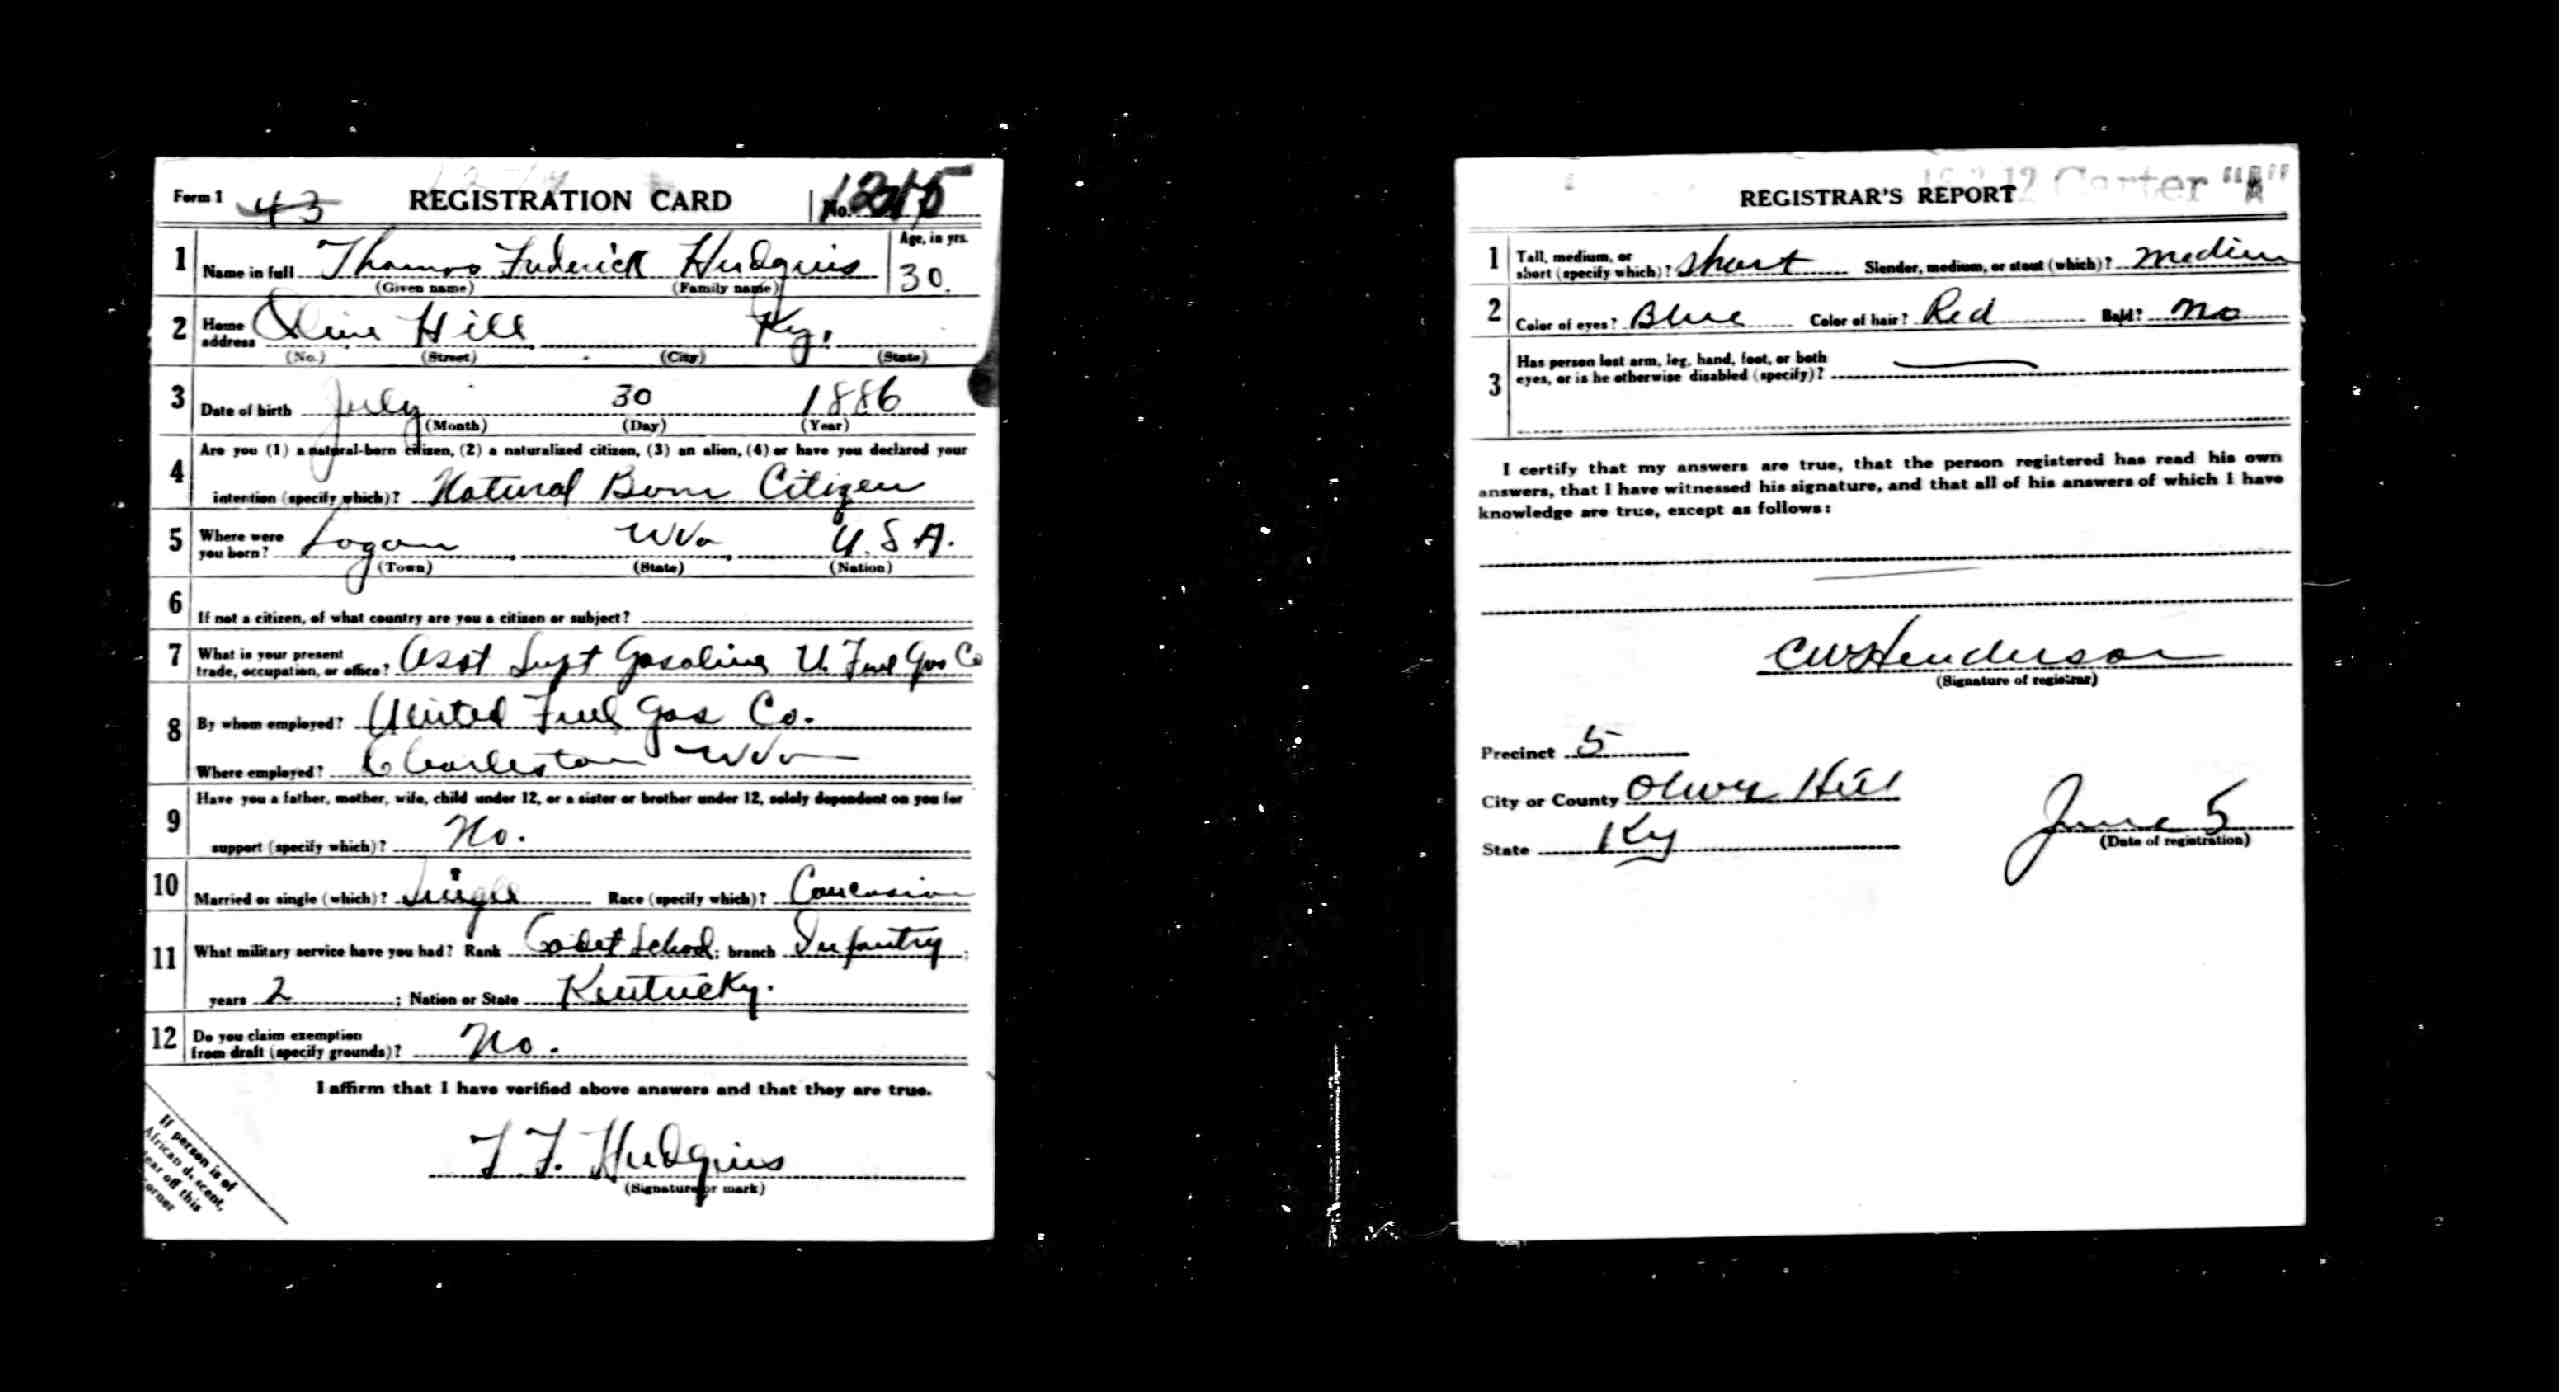 Form 1 43 REGISTRATION CARD No.
1 Name in full Thomas Frederick Hudgins Age, in yrs. 30.
(Given name) (Family name)
2 Home address Olive Hill Ky,
(No.) (Street) (City) (State)
3 Date of birth July 30 1886
(Month) (Day) (Year)
4 Are you (1) a natural-born citizen, (2) a naturalized citizen, (3) an alien, (4) or have you declared your
intention (specify which)? Natural Born Citizen
5 Where were you born? Logan WVa U.S.A.
(Town) (State) (Nation)
6 If not a citizen, of what country are you a citizen or subject?
7 What is your present
trade, occupation, or office? Asst Supt Gasoline U. Fuel Gas Co
8 By whom employed? United Fuel Gas Co.
Where employed? Charleston WVa
9 Have you a father, mother, wife, child under 12, or a sister or brother under 12, solely dependent on you for
support (specify which)? No.
10 Married or single (which)? Single Race (specify which)? Caucasian
11 What military service have you had? Rank Cadet School; branch Infantry;
years 2; Nation or State Kentucky.
12 Do you claim exemption
from draft (specify grounds)? No.
I affirm that I have verified above answers and that they are true.
T F. Hudgins
(Signature or mark)
If person is of
African descent,
tear off this
corner
Carter "A"
REGISTRAR'S REPORT
1 Tall, medium, or
short (specify which)? Short Slender, medium, or stout (which)? Medium
2 Color of eyes? Blue Color of hair? Red Bald? No
3 Has person lost arm, leg, hand, foot, or both
eyes, or is he otherwise disabled (specify)?
I certify that my answers are true, that the person registered has read his own
answers, that I have witnessed his signature, and that all of his answers of which I have
knowledge are true, except as follows:
CW Henderson
(Signature of registrar)
Precinct 5
City or County Olive Hill
State Ky
June 5
(Date of registration)